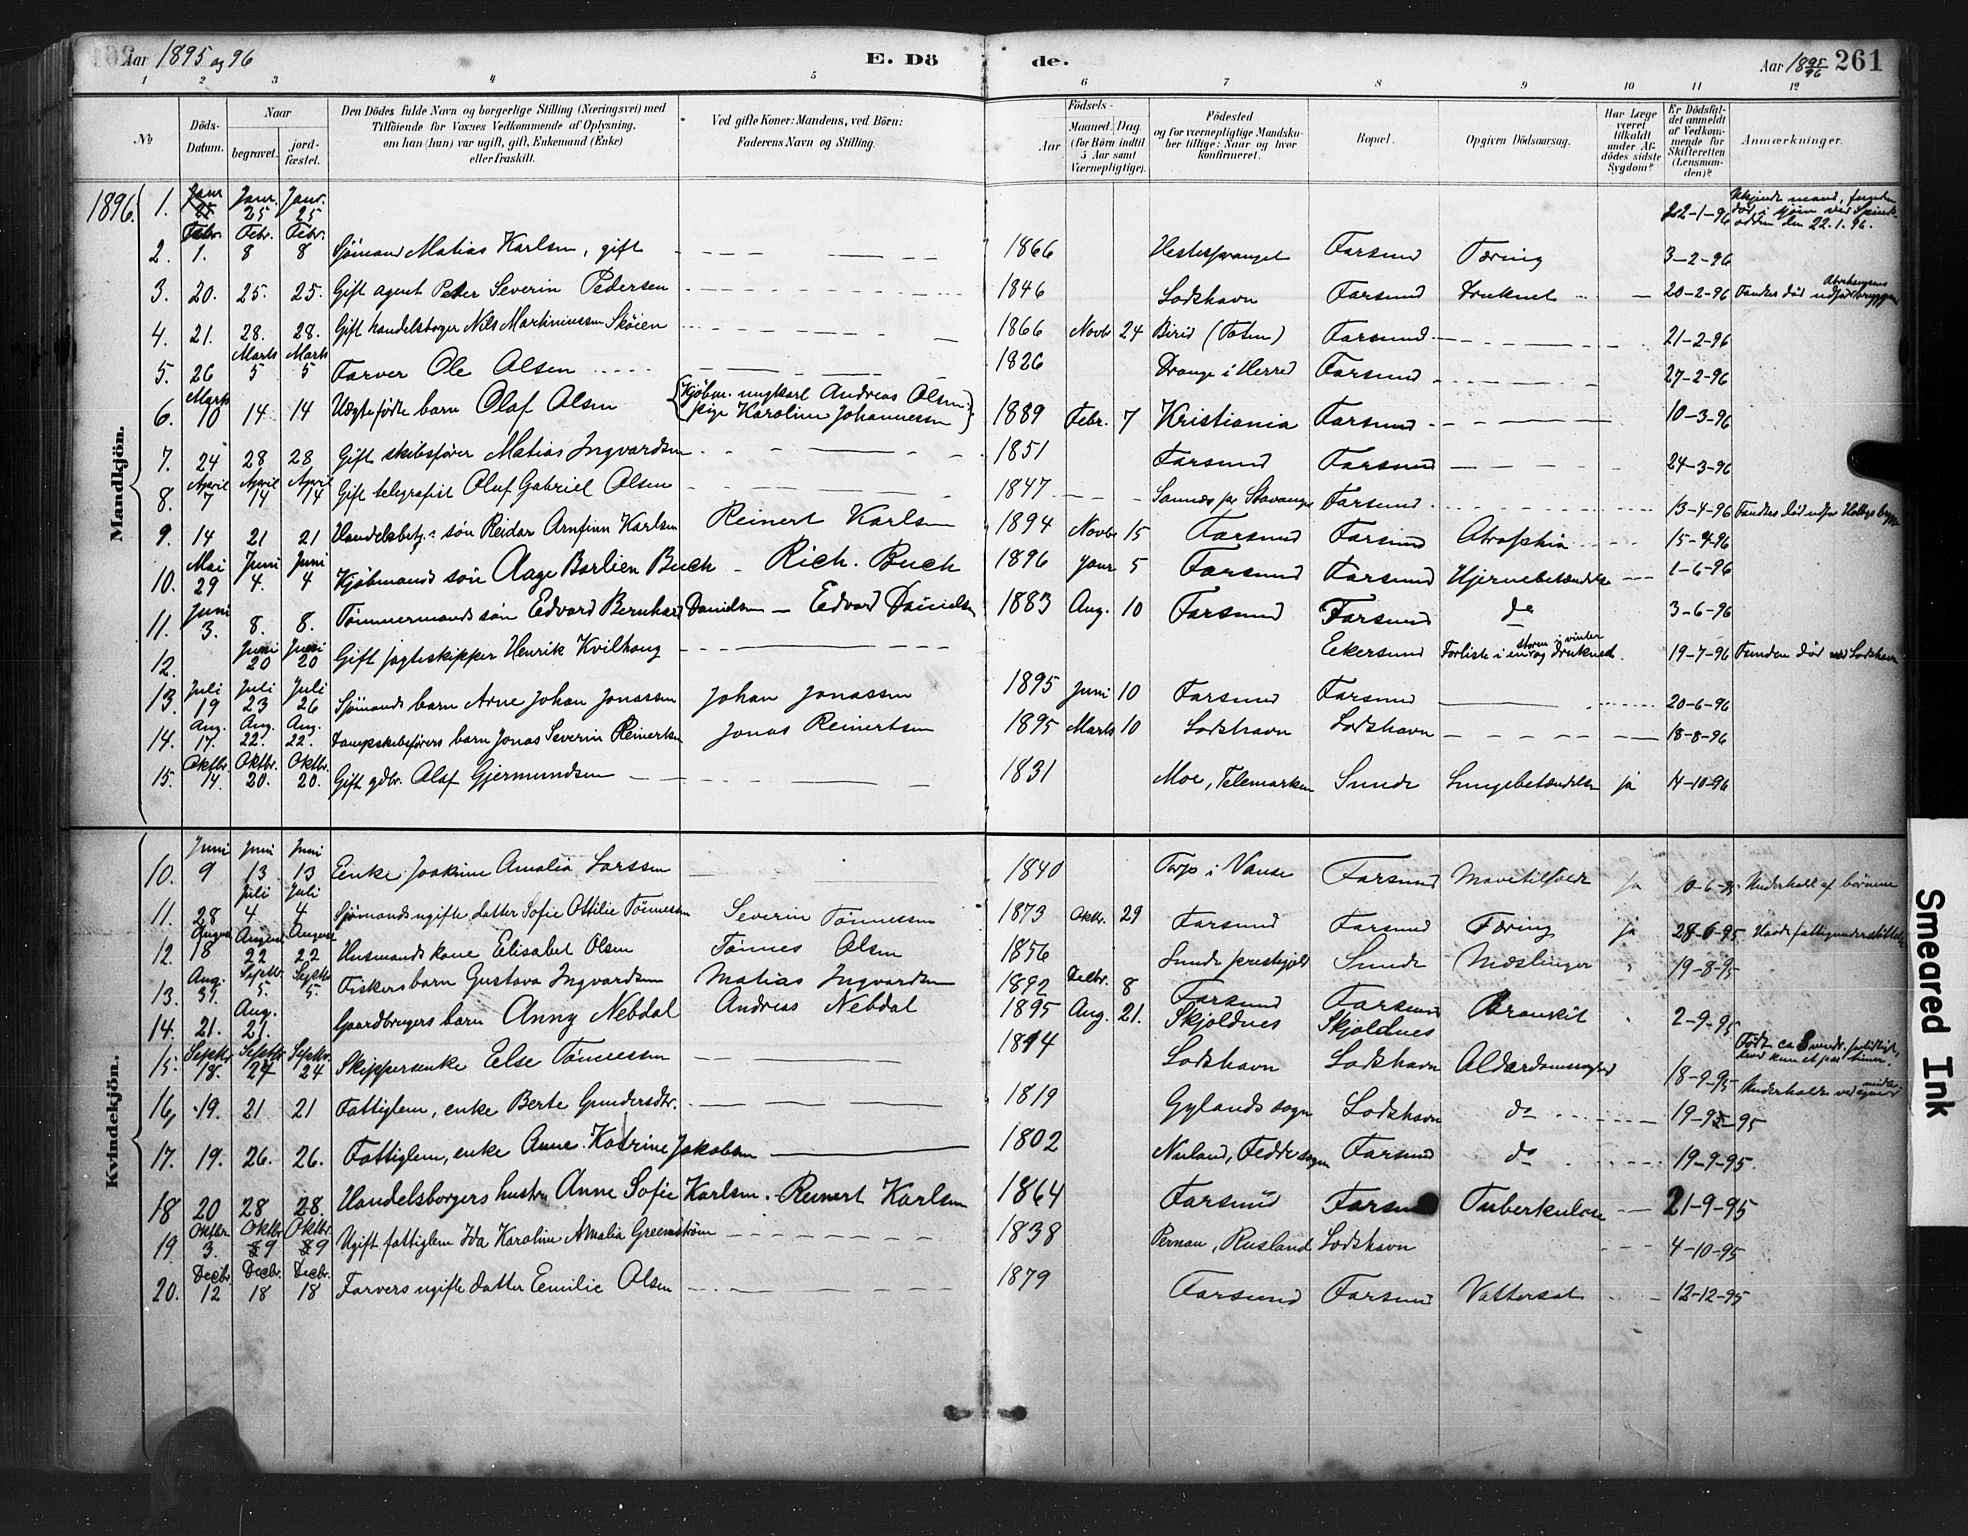 Aar 1895 og 96 E. Dö de. Aar 1895/96 261
1 2 3 4 5 6 7 8 9 10 11 12
No Döds-Datum. Naar begravet. jordfæstet. Den Dödes fulde Navn og borgerlige Stilling (Næringsvei) med Tilföiende for Voxnes Vedkommende af Oplysning, om han (hun) var ugift, gift, Enkemand (Enke) eller fraskilt. Ved gifte Koner: Mandens, ved Börn: Faderens Navn og Stilling. Födsels- Aar Maaned. Dag. (for Börn indtil 5 Aar samt Værnepligtige). Födested og for værnepligtige Mandskaber tillige: Naar og hvor konfirmeret. Bopæl. Opgiven Dödsaarsag. Har Læge været tilkaldt under Afdödes sidste Sygdom? Er Dödsfaldet anmeldt af Vedkommende for Skifteretten (Lensmanden)? Anmærkninger.
Mandkjön.
1896. 1. Janr. 25 Janr. 25 22-1-96 Ukjendt mand, funden död i sjøen ved den 22.1.96.
2. Febr. 1. Febr. 8 Febr. 8 Sjømand Matias Karlsen, gift 1866 Farsund Tæring 3-2-96
3. 20. 25. 25. Gift agent Peder Severin Pedersen 1846 Lodshavn Farsund Druknet 20-2-96 Fandtes död udfor bryggen
4. 21. 28. 28. Gift handelsborger Nils Martiniussen Skøien 1866 Novbr 24 Birid (Toten) Farsund 21-2-96
5. 26 Marts 5 Marts 5 Farver Ole Olsen 1826 Drange i Herred Farsund 27-2-96
6. Marts 10 14 14 Uægte fødte barn Olaf Olsen {Kjøbm. ungkarl Andreas Olsen, pige Karoline Johannessen} 1889 Febr. 7 Kristiania Farsund 10-3-96
7. 24 28 28 Gift skibsfører Matias Ingvardsen 1851 Farsund Farsund 24-3-96
8. April 7 April 14 April 14 Gift telegrafist Oluf Gabriel Olsen 1847 Farsund 13-4-96 Fandtes död udfor
9. 14 21 21 Handelsbetj.s søn Reidar Arnfinn Karlsen Reinert Karlsen 1894 Novbr 15 Farsund Farsund Atrophia 15-4-96
10. Mai 29 Juni 4. Juni 4 Kjøbmands søn Aage Barlien Buch Rich. Buch 1896 Janr 5 Farsund Farsund Hjernebetændelse 1-6-96
11. Juni 3. 8. 8. Tømmermands søn Edvard Bernhard Danielsen Edvard Danielsen 1883 Aug. 10 Farsund Farsund do 3-6-96
12. Juni 20 Juni 20 Gift jagteskipper Henrik Kvilhaug Ekersund Forliste i en storm i vinter og druknede. 19-7-96 Funden död ved Lodshavn
13. Juli 19 Juli 23 Juli 26 Sjømands barn Arne Johan Jonassen Johan Jonassen 1895 Juni 10 Farsund Farsund 20-6-96
14. Aug. 17. Aug. 22. Aug. 22. Dampskibsførers barn Jonas Severin Reinertsen Jonas Reinertsen 1895 Marts 10 Lodshavn Lodshavn 18-8-96
15. Oktbr. 14. Oktbr. 20. Oktbr. 20. Gift gdbr. Olaf Gjermundsen 1831 Moe, Telemarken Sunde Lungebetændelse ja 14-10-96
Kvindekjön.
10. Juni 9 Juni 13 Juni 13 Enke Joakime Amalia Larssen 1840 Torp i Vanse Farsund Mavetilfælde ja Underhold af børnene
11. 28 Juli 4 Juli 4 Sjømands ugifte datter Sofie Ottilie Tønnessen Severin Tønnessen 1873 Oktbr. 29 Farsund Farsund Tæring ja 28-6-95 Havde fattigunderstøttelse
12. August 18 August 22 August 22 Husmands kone Elisabet Olsen Tønnes Olsen 1856 Sunde Sunde Mæslinger 19-8-95
13. Aug. 31. Septbr. 5. Septbr. 5. Fiskers barn Gustava Ingvardsen Matias Ingvardsen 1892 Decbr. 8 Farsund Farsund Bronkit 2-9-95
14. 21. Aug. 21. Gaardbrugers barn Anny Nebdal Andreas Nebdal 1895 Aug. 21. Skjoldnes Skjoldnes
15. Septbr 18. Septbr 24 Septbr. 24 Skipperenke Else Tønnessen 1814 Lodshavn Lodshavn Alderdomssvaghed 18-9-95
16. 19. 21 21 Fattiglem, enke Berte Gundersdtr. 1819 Gylands sogn Lodshavn do 19-9-95
17. 19. 26. 26. Fattiglem, enke Anne Katrine Jakobsen 1802 Feddesogn Farsund do 19-9-95.
18 20 28 28. Handelsborgers hustru Anne Sofie Karlsen. Reinert Karlsen 1864 Farsund Farsund Tuberkulose 21-9-95
19 Oktbr 3. Oktbr 9 Oktbr. 9 Ugift fattiglem Ida Karoline Amalia Greenstrøm 1838 Pernau, Rusland Lodshavn 4-10-95
20. Decbr. 12 Decbr. 18 Decbr. 18 Farvers ugifte datter Emilie Olsen 1879 Farsund Farsund Vattersot 12-12-95
Smeared Ink